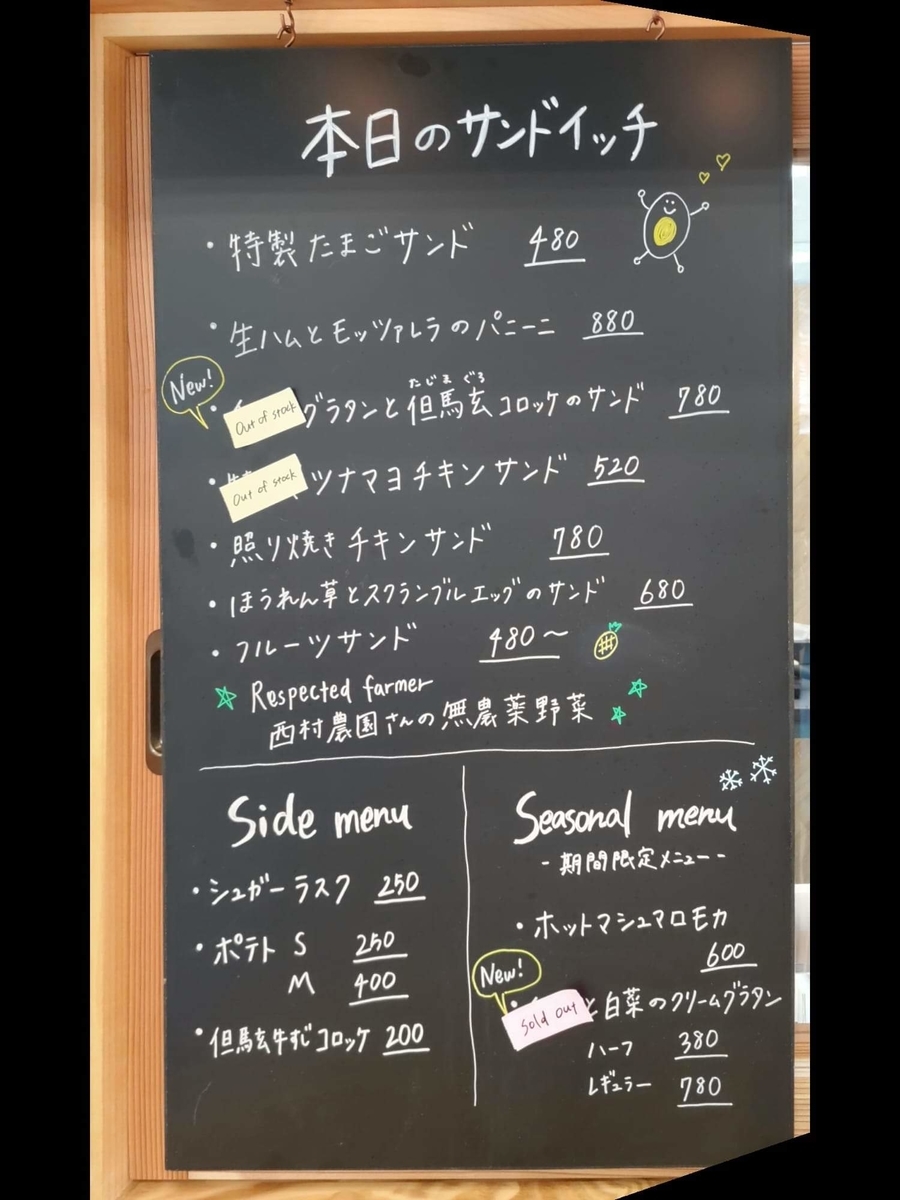 本日のサンドイッチ
・特製たまごサンド 480
・生ハムとモッツァレラのパニーニ 880
New!
たじまぐろ
・ Out of stock グラタンと但馬玄コロッケのサンド 780
・ Out of stock ツナマヨチキンサンド 520
・照り焼きチキンサンド 780
・ほうれん草とスクランブルエッグのサンド 680
・フルーツサンド 480〜
Respected farmer
西村農園さんの無農薬野菜
Side menu
・シュガーラスク 250
・ポテト S 250
M 400
・但馬玄牛すじコロッケ 200
Seasonal menu
-期間限定メニュー-
・ホットマシュマロモカ
600
New!
・ Sold out と白菜のクリームグラタン
ハーフ 380
レギュラー 780